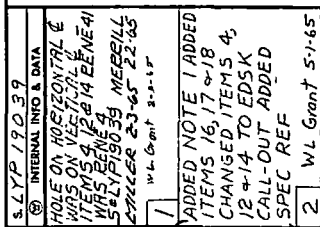 S. LYP 19039
INTERNAL INFO & DATA
HOLE ON HORIZONTAL ¢
WAS ON VERTICAL ¢
ITEMS 4, 12 & 14 RENE 41
WAS RENE 4
S#LYP19039 MERRILL
MILLER 2-3-65 22-65
W L Grant
1
ADDED NOTE 1 ADDED
ITEMS 16, 17 & 18
CHANGED ITEMS 4,
12 & 14 TO EDSK
CALL-OUT ADDED
SPEC REF
2 WL Grant 5-1-65